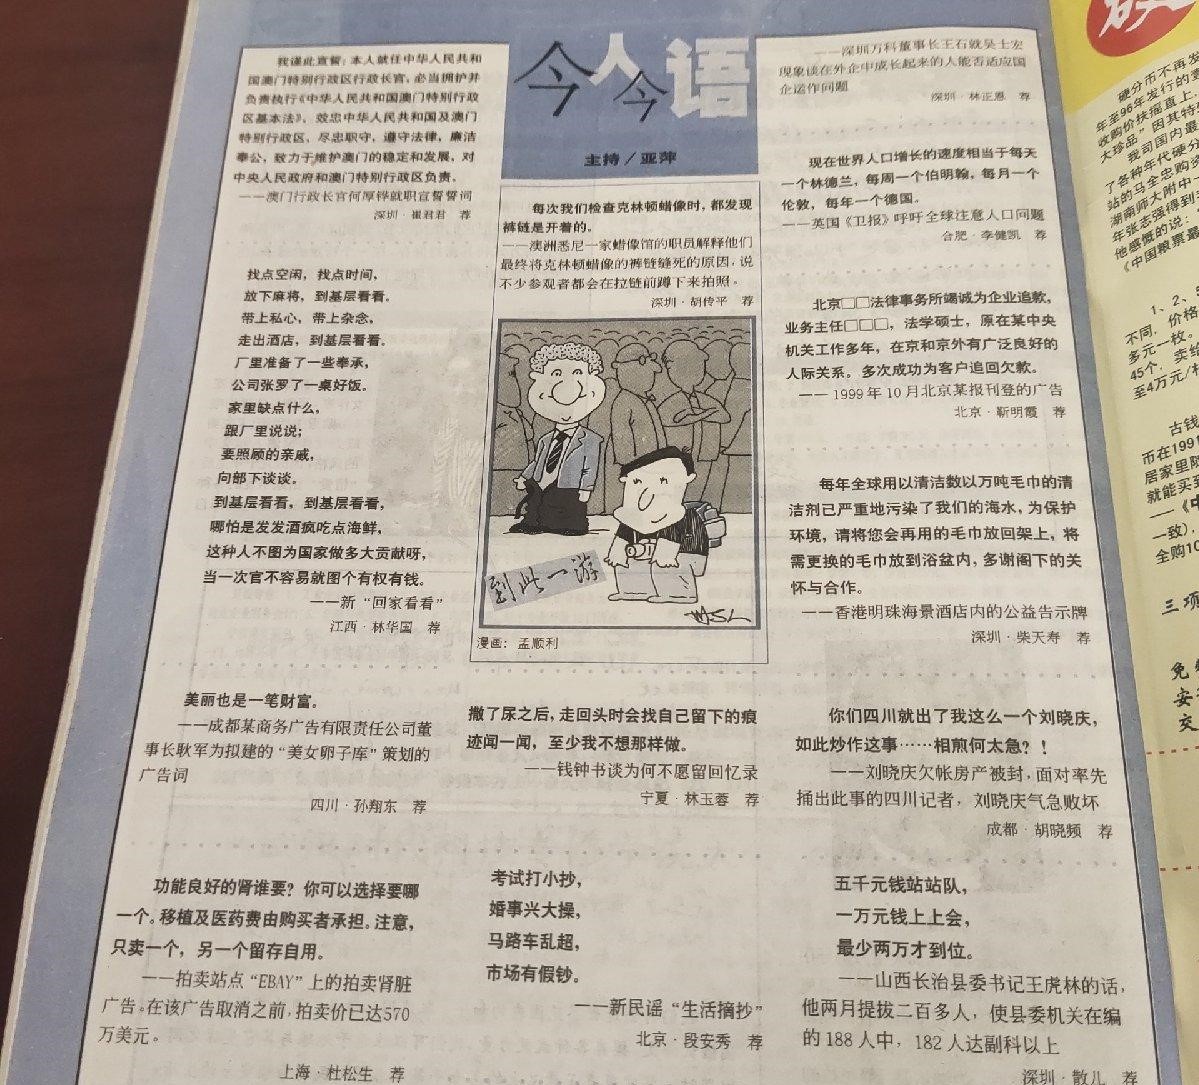 今人今语
主持／亚萍
我谨此宣誓：本人就任中华人民共和
国澳门特别行政区行政长官，必当拥护并
负责执行《中华人民共和国澳门特别行政
区基本法》，效忠中华人民共和国及澳门
特别行政区，尽忠职守，遵守法律，廉洁
奉公，致力于维护澳门的稳定和发展，对
中央人民政府和澳门特别行政区负责。
——澳门行政长官何厚铧就职宣誓誓词
深圳·崔君君 荐
找点空闲，找点时间，
放下麻将，到基层看看。
带上私心，带上杂念，
走出酒店，到基层看看。
厂里准备了一些奉承，
公司张罗了一桌好饭。
家里缺点什么，
跟厂里说说；
要照顾的亲戚，
向部下谈谈。
到基层看看，到基层看看，
哪怕是发发酒疯吃点海鲜，
这种人不图为国家做多大贡献呀，
当一次官不容易就图个有权有钱。
——新“回家看看”
江西·林华国 荐
美丽也是一笔财富。
——成都某商务广告有限责任公司董
事长耿军为拟建的“美女卵子库”策划的
广告词
四川·孙翔东 荐
功能良好的肾谁要？你可以选择要哪
一个。移植及医药费由购买者承担。注意，
只卖一个，另一个留存自用。
——拍卖站点“EBAY”上的拍卖肾脏
广告。在该广告取消之前，拍卖价已达570
万美元。
上海·杜松生 荐
每次我们检查克林顿蜡像时，都发现
裤链是开着的。
——澳洲悉尼一家蜡像馆的职员解释他们
最终将克林顿蜡像的裤链缝死的原因，说
不少参观者都会在拉链前蹲下来拍照。
深圳·胡传平 荐
到此一游
漫画：孟顺利
撒了尿之后，走回头时会找自己留下的痕
迹闻一闻，至少我不想那样做。
——钱钟书谈为何不愿留回忆录
宁夏·林玉蓉 荐
考试打小抄，
婚事兴大操，
马路车乱超，
市场有假钞。
——新民谣“生活摘抄”
北京·段安秀 荐
——深圳万科董事长王石就吴士宏
现象谈在外企中成长起来的人能否适应国
企运作问题
深圳·林正恩 荐
现在世界人口增长的速度相当于每天
一个林德兰，每周一个伯明翰，每月一个
伦敦，每年一个德国。
——英国《卫报》呼吁全球注意人口问题
合肥·李健凯 荐
北京□□法律事务所竭诚为企业追款，
业务主任□□□，法学硕士，原在某中央
机关工作多年，在京和京外有广泛良好的
人际关系。多次成功为客户追回欠款。
——1999年10月北京某报刊登的广告
北京·靳明霞 荐
每年全球用以清洁数以万吨毛巾的清
洁剂已严重地污染了我们的海水，为保护
环境，请将您会再用的毛巾放回架上，将
需更换的毛巾放到浴盆内，多谢阁下的关
怀与合作。
——香港明珠海景酒店内的公益告示牌
深圳·柴天寿 荐
你们四川就出了我这么一个刘晓庆，
如此炒作这事……相煎何太急？！
——刘晓庆欠帐房产被封，面对率先
捅出此事的四川记者，刘晓庆气急败坏
成都·胡晓频 荐
五千元钱站站队，
一万元钱上上会，
最少两万才到位。
——山西长治县委书记王虎林的话，
他两月提拔二百多人，使县委机关在编
的188人中，182人达副科以上
深圳·散儿 荐
硬分币不再发
年至96年发行的
收购价扶摇直上，
大珍品”因其特
我司国内最
了各种年代硬分
站的马全忠购
湖南师大附中一
年张志强得到
他感慨的说：
《中国粮票最
1、2、
不同，价格
多元一枚。
45个，卖给
至4万元/枚
古钱
币在199
居家里
就能买到
——《中
一致），
全购10
三项
免
安
交